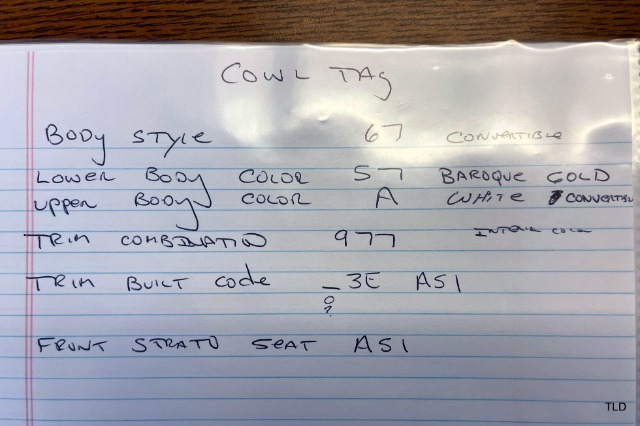 COWL TAG
BODY STYLE 67 CONVERTIBLE
LOWER BODY COLOR 57 BAROQUE GOLD
UPPER BODY COLOR A WHITE CONVERTIBL
TRIM COMBINATIO 977 INTERIOR COLOR
TRIM BUILT CODE _3E A51
0
?
FRONT STRATO SEAT A51
TLD